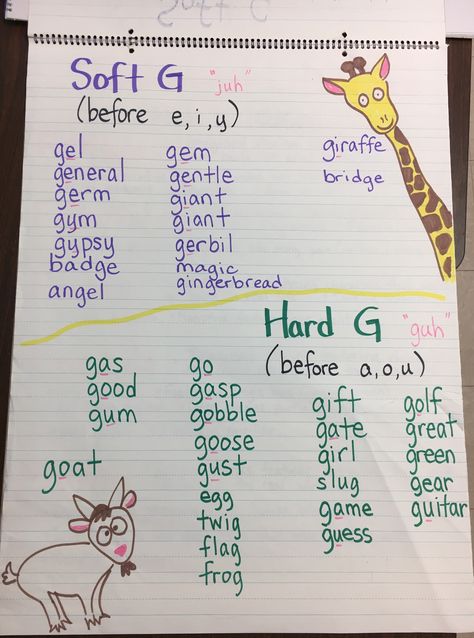 Soft G "juh"
(before e, i, y)
gel
general
germ
gym
gypsy
badge
angel
gem
gentle
giant
giant
gerbil
magic
gingerbread
giraffe
bridge
Hard G "guh"
(before a, o, u)
gas
good
gum
goat
go
gasp
gobble
goose
gust
egg
twig
flag
frog
gift
gate
girl
slug
game
guess
golf
great
green
gear
guitar